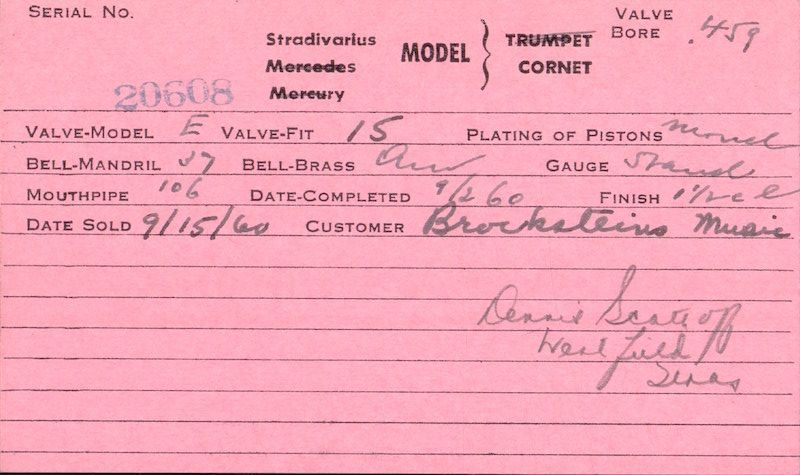 SERIAL NO. VALVE
Stradivarius TRUMPET BORE .459
Mercedes MODEL CORNET
20608 Mercury
VALVE-MODEL E VALVE-FIT 15 PLATING OF PISTONS Monel
BELL-MANDRIL 37 BELL-BRASS GAUGE Stand
MOUTHPIPE 106 DATE-COMPLETED 9/2 60 FINISH
DATE SOLD 9/15/60 CUSTOMER Brocksteins Music
Dennis
Westfield
Texas